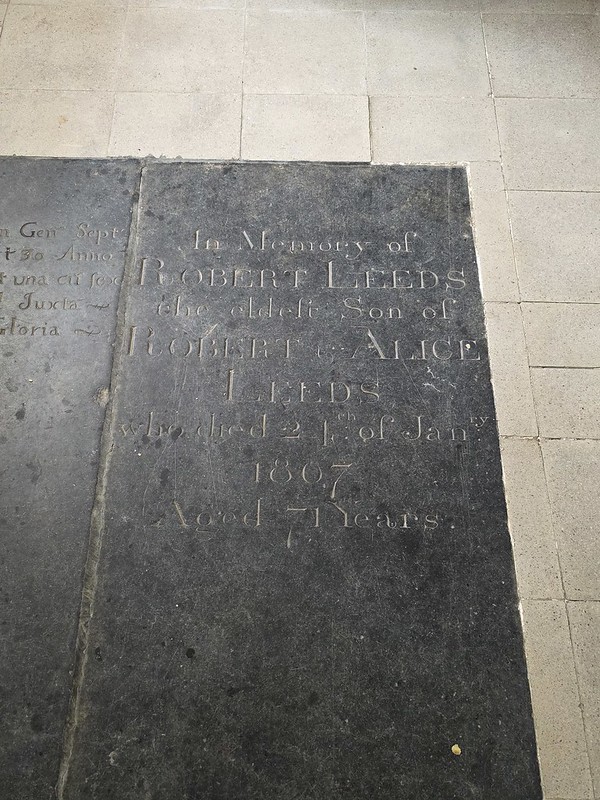 n Gen Sept
t 30 Anno
t una cū
Juxta
Gloria
In Memory of
ROBERT LEEDS
the eldest Son of
ROBERT & ALICE
LEEDS
who died 24th of Janry
1807
Aged 71 Years.